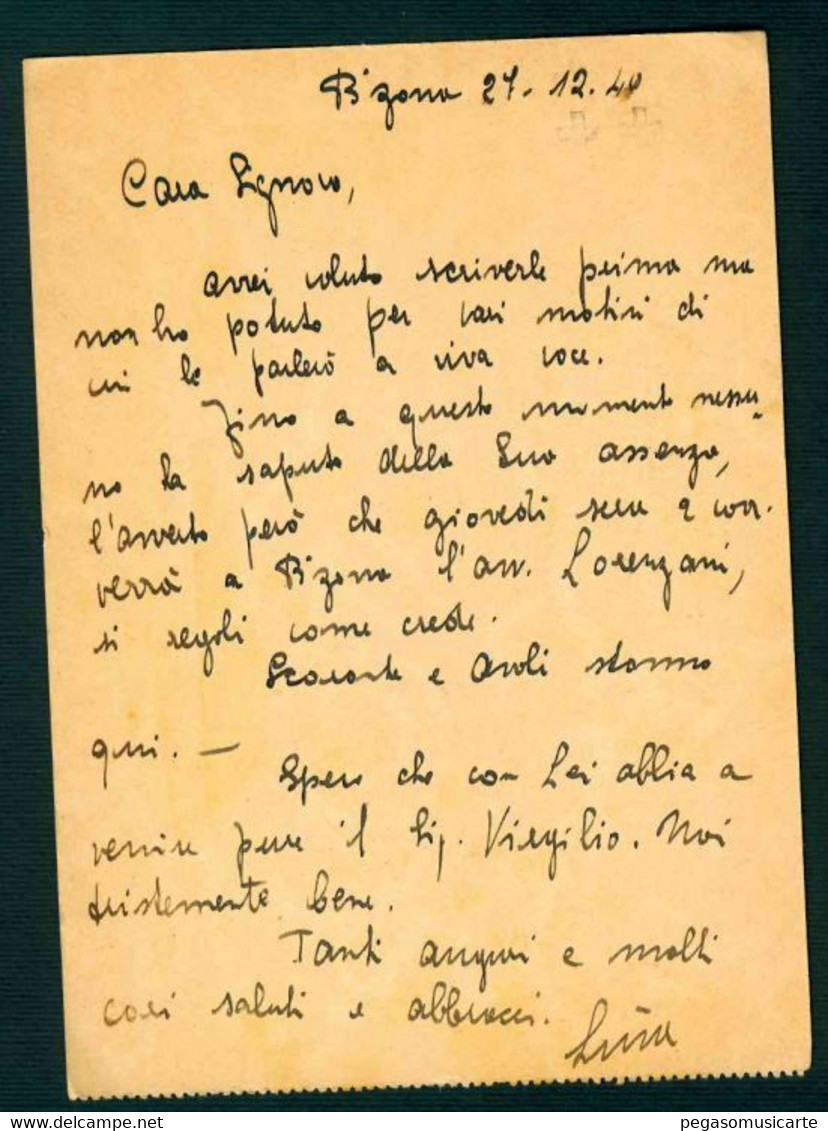 Bizona 27. 12. 40
Cara Signora,
avrei voluto scriverle prima ma
non ho potuto per vari motivi di
cui le parlerò a viva voce.
Fino a questo momento nessu=
no ha saputo della Sua assenza,
l'avverto però che giovedì sera 2 corr.
verrà a Bizona l'avv. Lorenzani,
si regoli come crede.
e stanno
qui. —
Spero che con Lei abbia a
venire pure il Sig. Virgilio. Noi
tristemente bene.
Tanti auguri e molti
cari saluti e abbracci.
pegasomusicarte